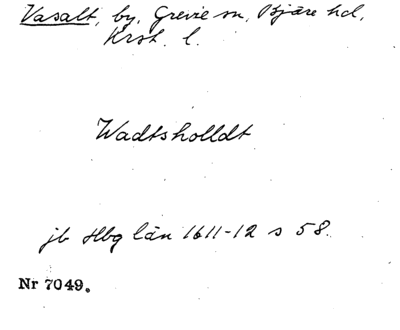 Vasalt, by, Grevie sn, Bjäre hd,
Krst. l.
Wadtsholldt
jb Hbg län 1611-12 s 58.
Nr 7049.